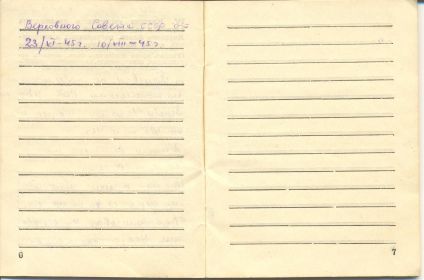 Верховного Совета СССР
23/VI-45г. 10/VIII-45г.
6
7